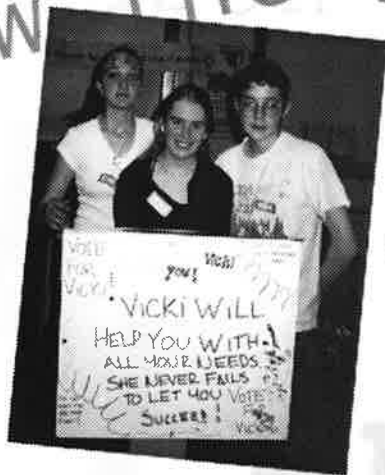 VOTE
FOR
VICKI!
Vicki
you!
VICKI WILL
HELP YOU WITH
ALL YOUR NEEDS
SHE NEVER FAILS
TO LET YOU
SUCCEED!
VOTE
Vicki